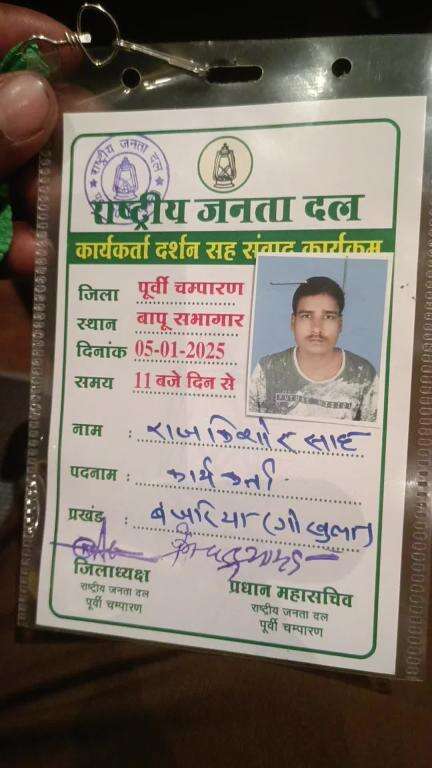 राष्ट्रीय जनता दल
राष्ट्रीय जनता दल
कार्यकर्ता दर्शन सह संवाद कार्यक्रम
जिला पूर्वी चम्पारण
स्थान बापू सभागार
दिनांक 05-01-2025
समय 11 बजे दिन से
FUTURE
नाम : राज किशोर साह
पदनाम : कार्यकर्ता
प्रखंड : बंजरिया (गोखुला)
जिलाध्यक्ष
राष्ट्रीय जनता दल
पूर्वी चम्पारण
प्रधान महासचिव
राष्ट्रीय जनता दल
पूर्वी चम्पारण